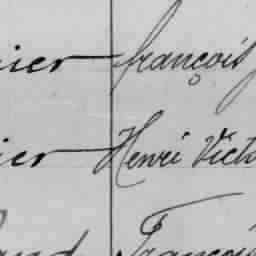 ier françois
ier Henri Vict
and François